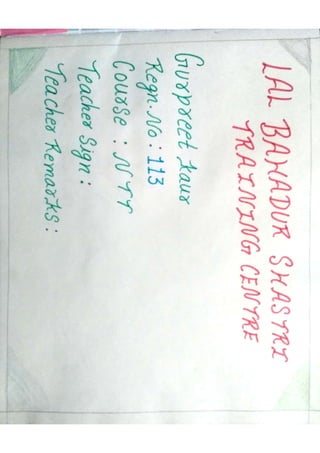 LAL BAHADUR SHASTRI
TRAINING CENTRE
Gurpreet kaur
Regn.No: 113
Course : NTT
Teacher Sign :
Teacher Remarks :